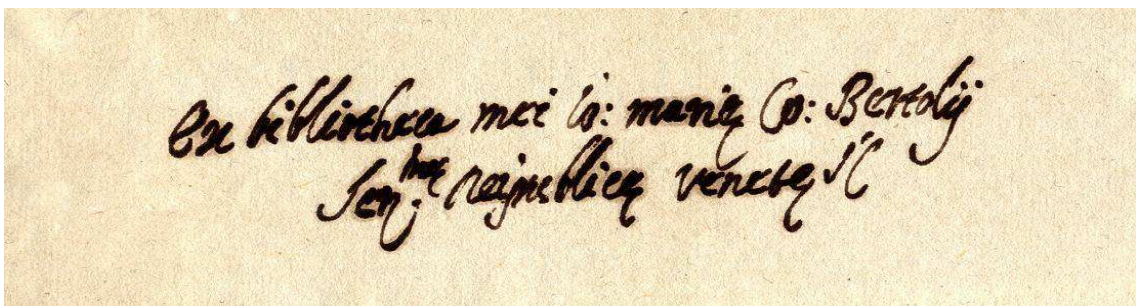 Ex bibliotheca mei Io: marię Co: Bertolij
Ser.mę Reipublicę venetę